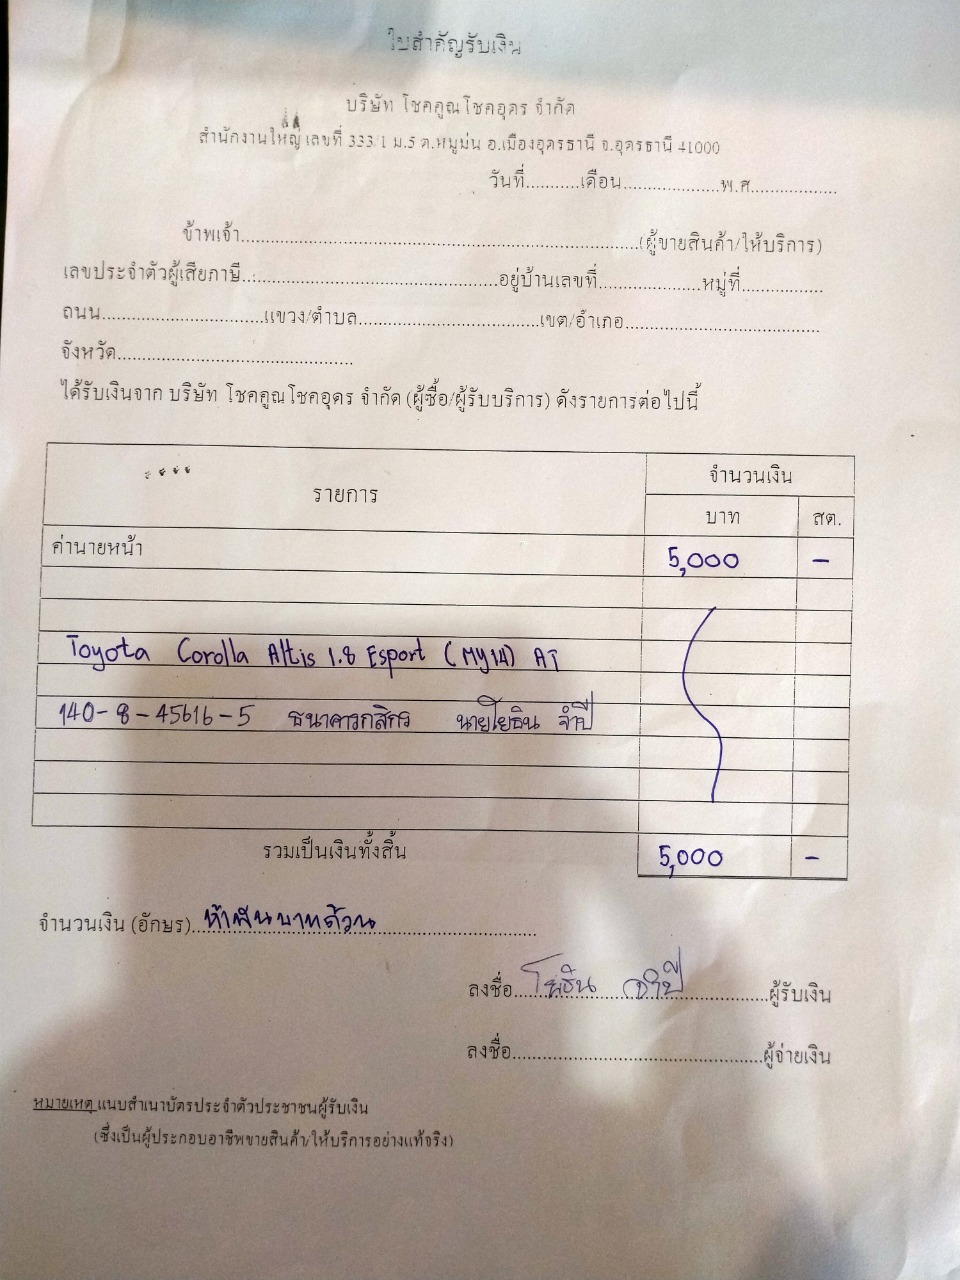 ใบสำคัญรับเงิน
บริษัท โชคคูณโชคอุดร จำกัด
สำนักงานใหญ่ เลขที่ 333/1 ม.5 ต.หมูม่น อ.เมืองอุดรธานี จ.อุดรธานี 41000
วันที่...........เดือน....................พ.ศ..................
ข้าพเจ้า..................................................................................(ผู้ขายสินค้า/ให้บริการ)
เลขประจำตัวผู้เสียภาษี..:..................................................อยู่บ้านเลขที่.....................หมู่ที่.................
ถนน.................................แขวง/ตำบล......................................เขต/อำเภอ........................................
จังหวัด.................................................
ได้รับเงินจาก บริษัท โชคคูณโชคอุดร จำกัด (ผู้ซื้อ/ผู้รับบริการ) ดังรายการต่อไปนี้
รายการ จำนวนเงิน
บาท สต.
ค่านายหน้า 5,000 -
Toyota Corolla Altis 1.8 Esport (MY14) AT
140-8-45616-5 ธนาคารกสิกร นายโยธิน จำปี
รวมเป็นเงินทั้งสิ้น 5,000 -
จำนวนเงิน (อักษร)..ห้าพันบาทถ้วน................................
ลงชื่อ..โยธิน จำปี.................ผู้รับเงิน
ลงชื่อ....................................................ผู้จ่ายเงิน
หมายเหตุ แนบสำเนาบัตรประจำตัวประชาชนผู้รับเงิน
(ซึ่งเป็นผู้ประกอบอาชีพขายสินค้า/ให้บริการอย่างแท้จริง)